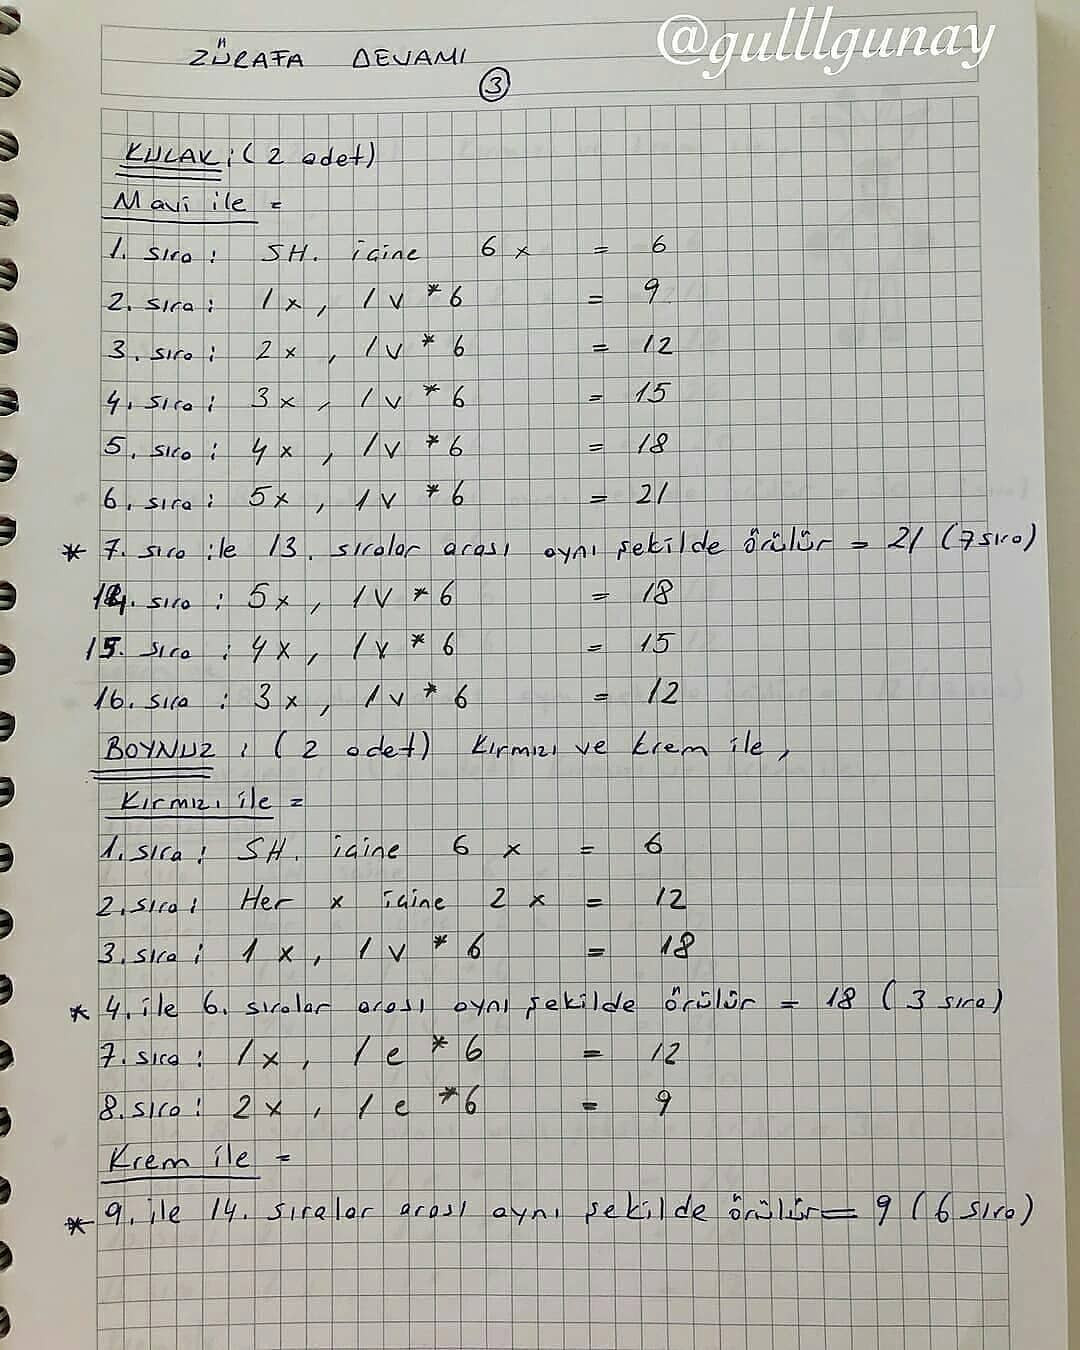 @gulllgunay
ZÜRAFA DEVAMI
3
KULAK : ( 2 adet)
Mavi ile =
1. sıra : SH. içine 6 x = 6
2. sıra : 1 x , 1 v * 6 = 9
3. sıra : 2 x , 1 v * 6 = 12
4. sıra : 3 x , 1 v * 6 = 15
5. sıra : 4 x , 1 v * 6 = 18
6. sıra : 5 x , 1 v * 6 = 21
* 7. sıra ile 13. sıralar arası aynı şekilde örülür = 21 (7 sıra)
14. sıra : 5 x , 1 v * 6 = 18
15. sıra : 4 x , 1 v * 6 = 15
16. sıra : 3 x , 1 v * 6 = 12
BOYNUZ : ( 2 adet) Kırmızı ve krem ile ,
Kırmızı ile =
1. sıra : SH. içine 6 x = 6
2. sıra : Her x içine 2 x = 12
3. sıra : 1 x , 1 v * 6 = 18
* 4. ile 6. sıralar arası aynı şekilde örülür = 18 ( 3 sıra)
7. sıra : 1 x , 1 e * 6 = 12
8. sıra : 2 x , 1 e * 6 = 9
Krem ile =
* 9. ile 14. sıralar arası aynı şekilde örülür = 9 ( 6 sıra)